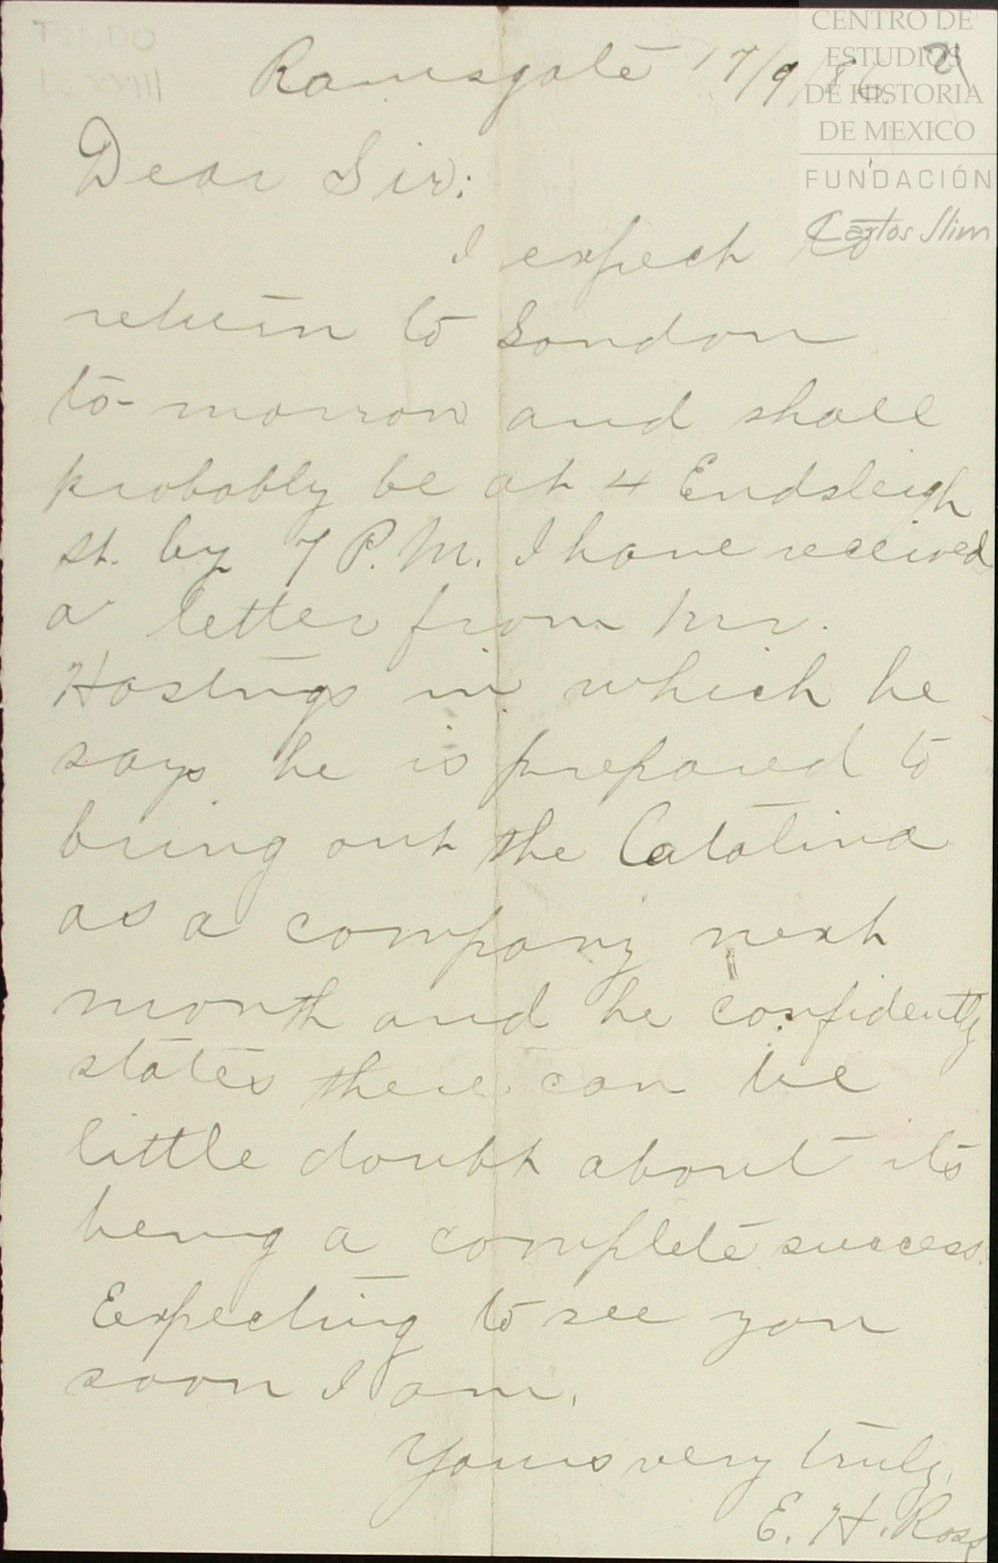 FONDO
LXVIII
CENTRO DE
ESTUDIOS
DE HISTORIA
DE MEXICO
FUNDACIÓN
Carlos Slim
Ramsgate 17/9/86
Dear Sir:
I expect to
return to London
to-morrow and shall
probably be at 4 Endsleigh
st. by 7 P.M. I have received
a letter from Mr.
Hastings in which he
says he is prepared to
bring out the Catalina
as a company next
month and he confidently
states there can be
little doubt about its
being a complete success.
Expecting to see you
soon I am,
Yours very truly,
E. H. Ross